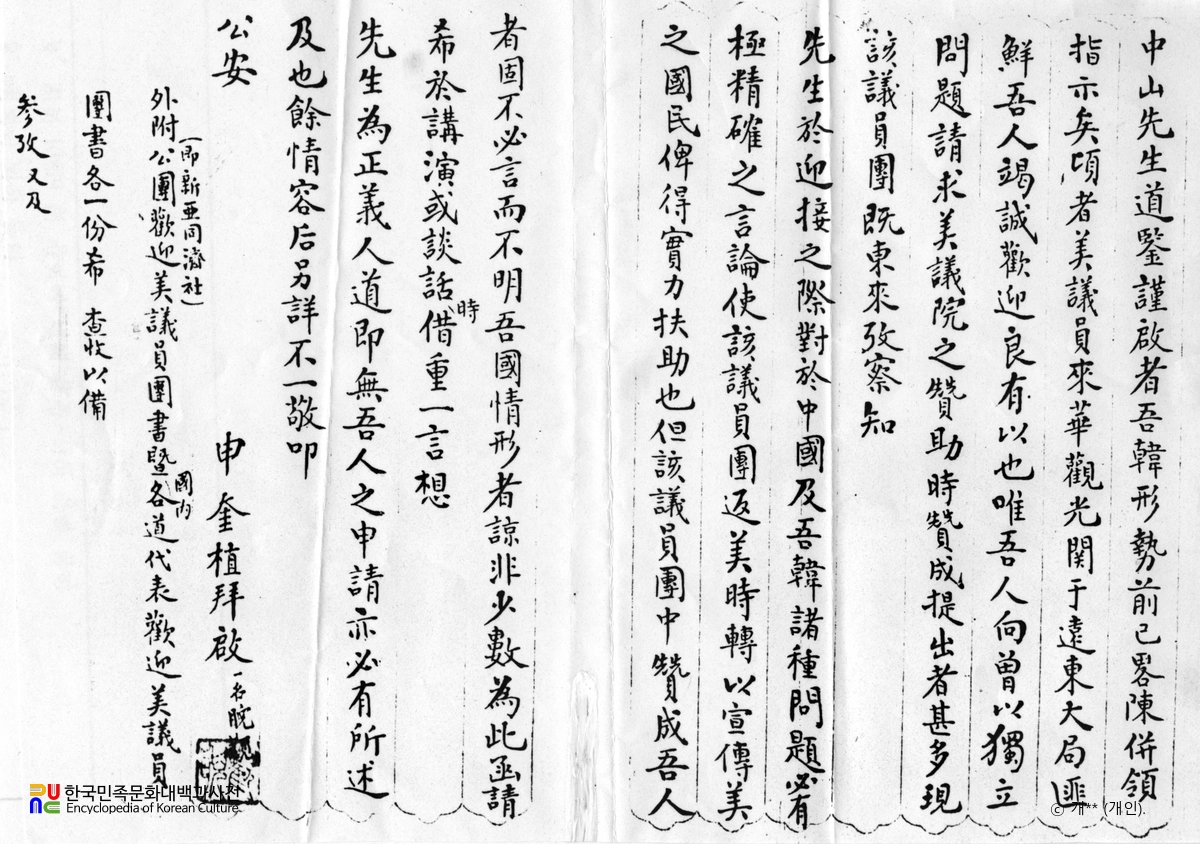 中山先生道鑒謹啟者吾韓形勢前已畧陳併領
指示矣頃者美議員來華觀光関于遠東大局匪
鮮吾人竭誠歡迎良有以也唯吾人向曾以獨立
問題請求美議院之贊助時贊成提出者甚多現
該議員團既東來攷察知
先生於迎接之際對於中國及吾韓諸種問題必有
極精確之言論使該議員團返美時轉以宣傳美
之國民俾得實力扶助也但該議員團中贊成吾人
者固不必言而不明吾國情形者諒非少數為此函請
希於講演或談話時借重一言想
先生為正義人道即無吾人之申請亦必有所述
及也餘情容后另詳不一敬叩
公安
申奎植拜啟 一名睨觀
(即新亜同濟社)
外附公團歡迎美議員團書暨國內各道代表歡迎美議員
團書各一份希 查收以備
參攷又及
한국민족문화대백과사전
Encyclopedia of Korean Culture
ⓒ 개** (개인).